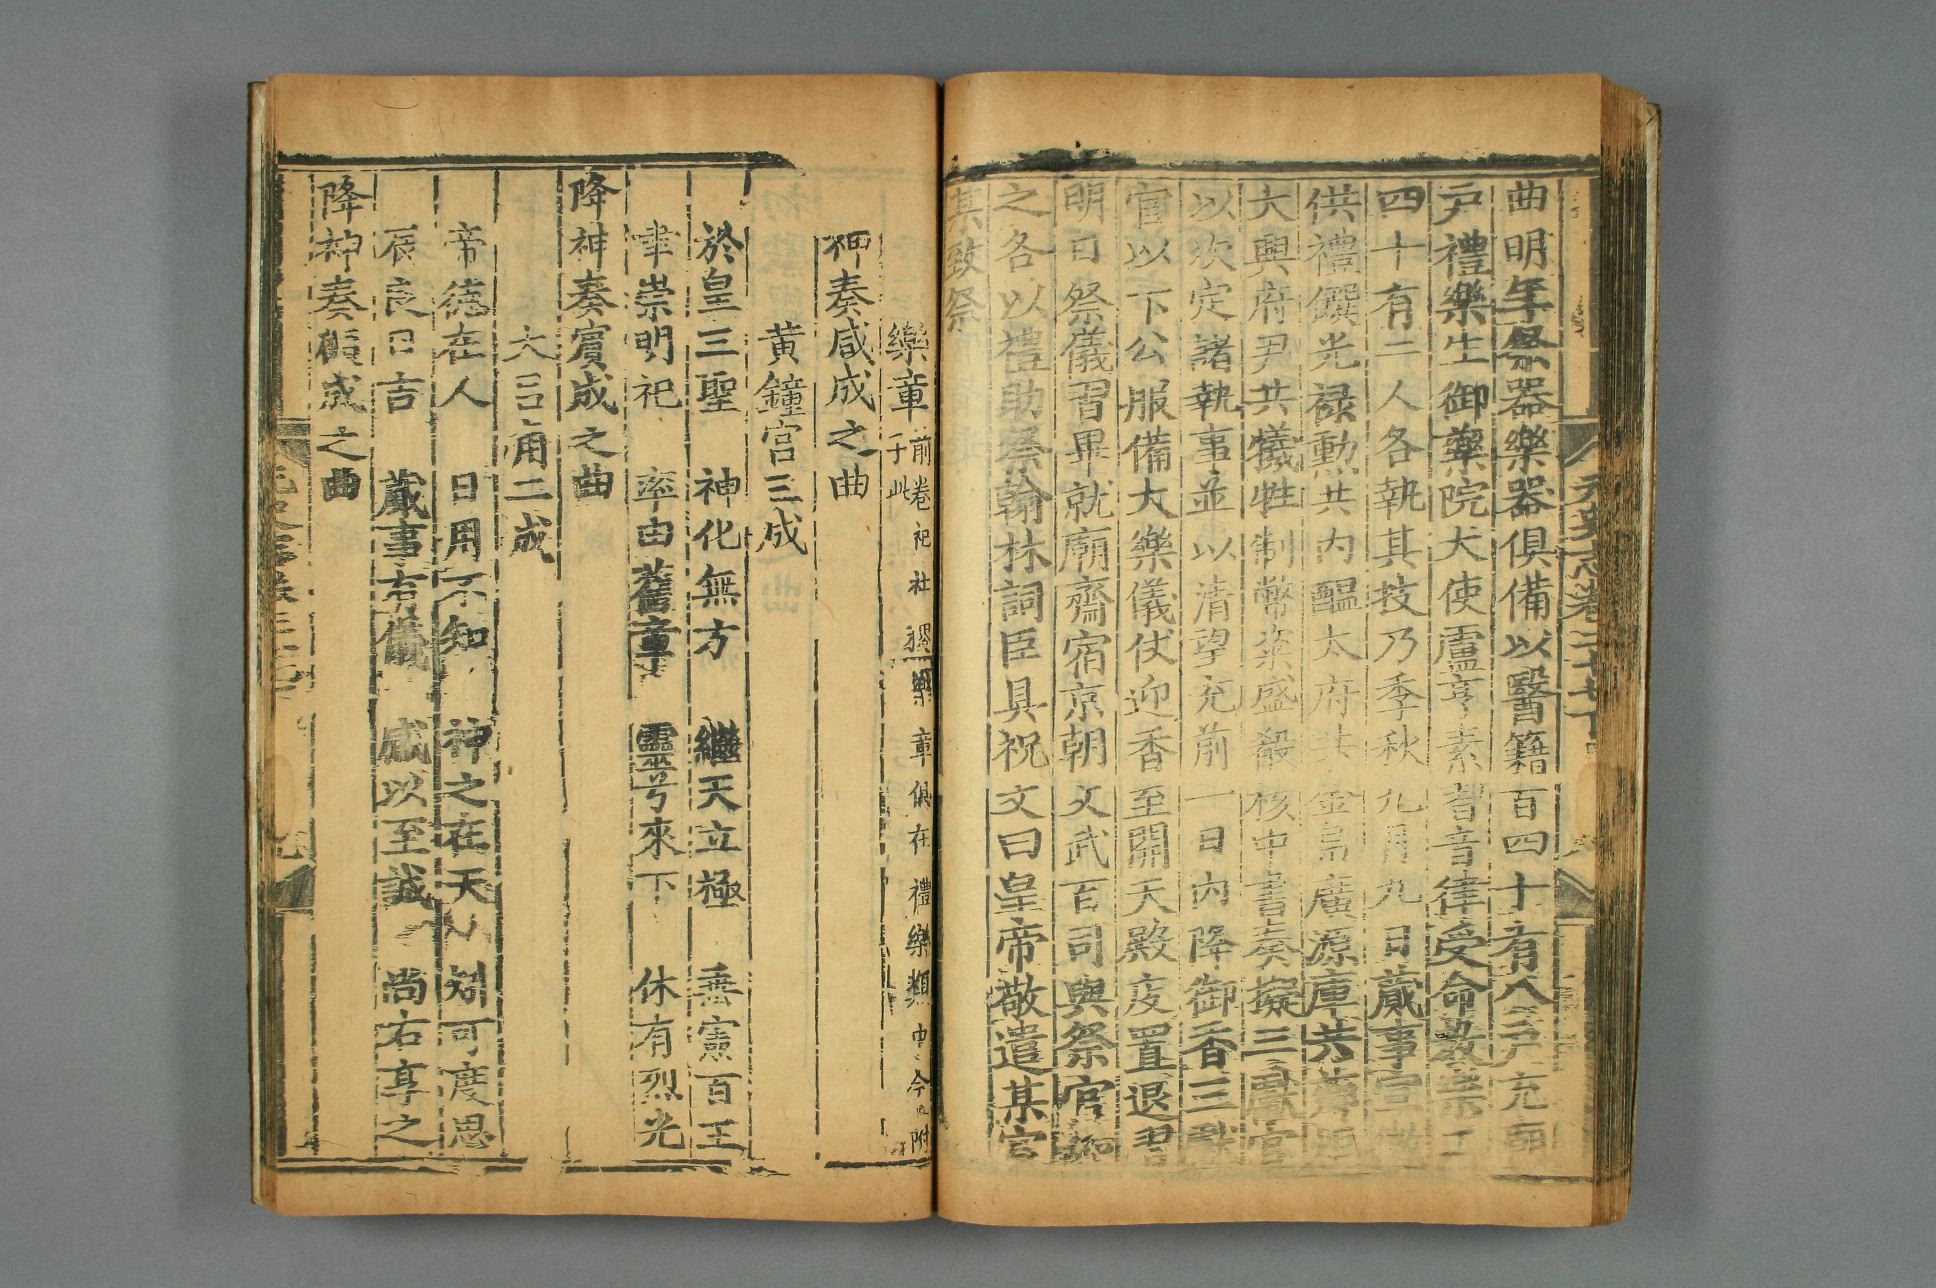 元史志卷二十七下
曲明年祭器樂器俱備以醫籍百四十有八戶充廟
戶禮樂生御藥院大使盧亨素習音律受命教樂工
四十有二人各執其技乃季秋九月九日蕆事宣徽
供禮饌光祿勳共內醞太府共金帛廣源庫共薌炬
大興府尹共犧牲制幣粢盛殽核中書奏擬三獻官
以次定諸執事並以清望充前一日內降御香三獻
官以下公服備大樂儀仗迎香至開天殿庋置退習
明日祭儀習畢就廟齋宿京朝文武百司與祭官
之各以禮助祭翰林詞臣具祝文曰皇帝敬遣某官
某致祭
樂章 前卷社稷樂章俱在禮樂類中今附于此
神奏咸成之曲
黃鐘宮三成
於皇三聖 神化無方 繼天立極 垂憲百王
聿崇明祀 率由舊章 靈兮來下 休有烈光
降神奏賓成之曲
大呂角二成
帝德在人 日用不知 神之在天 矧可度思
辰良日吉 蕆事有儀 感以至誠 尚右享之
降神奏顧成之曲